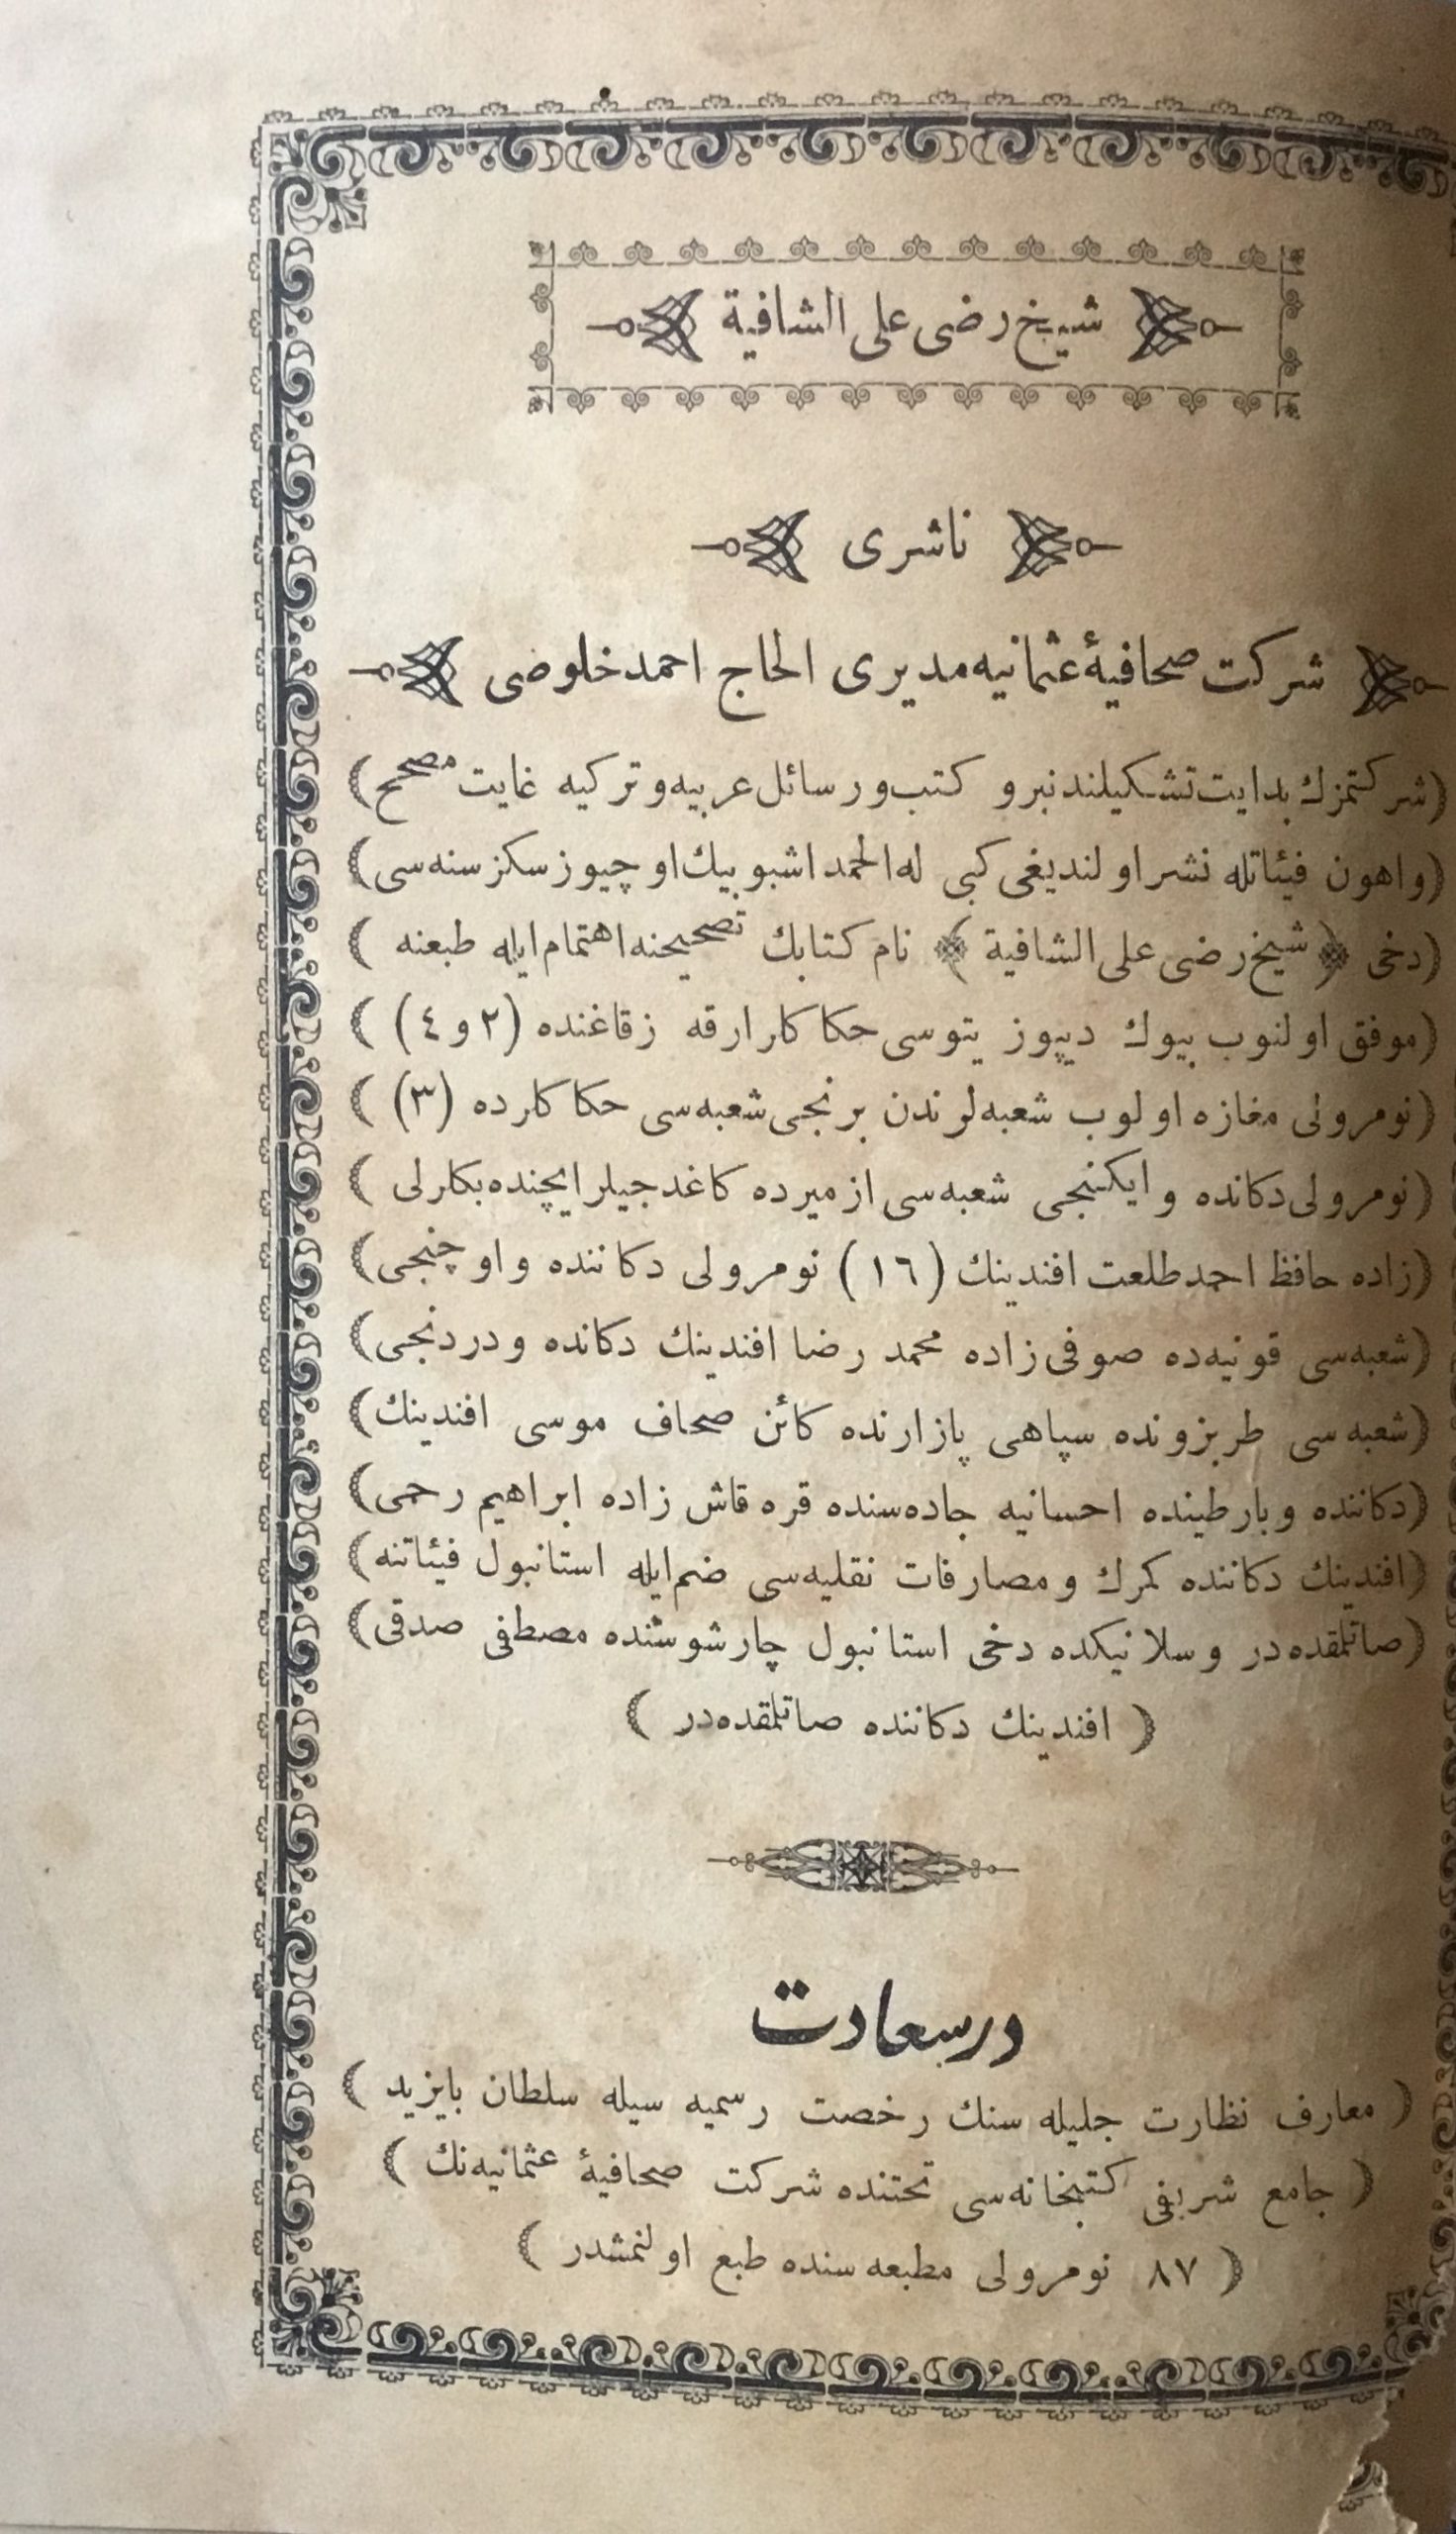 شيخ رضى على الشافية
ناشرى
شركت صحافيهٔ عثمانيه مديرى الحاج احمد خلوصى
(شركتمزك بدايت تشكيلندنبرو كتب و رسائل عربيه و تركيه غايت مصحح)
(و اهون فيئاتله نشر اولنديغى كبى له الحمد اشبو بيك اوچيوز سكز سنه سى)
(دخى ﴿ شيخ رضى على الشافية ﴾ نام كتابك تصحيحنه اهتمام ايله طبعنه)
(موفق اولنوب بيوك ديپوزيتوسى حكاكلر ارقه زقاغنده (٢ و ٤))
(نومرولى مغازه اولوب شعبه لرندن برنجى شعبه سى حكاكلرده (٣))
(نومرولى دكانده و ايكنجى شعبه سى ازميرده كاغدجيلر ايچنده بكلرلى)
(زاده حافظ احمد طلعت افندينك (١٦) نومرولى دكاننده و اوچنجى)
(شعبه سى قونيه ده صوفى زاده محمد رضا افندينك دكانده و دردنجى)
(شعبه سى طربزونده سپاهى پازارنده كائن صحاف موسى افندينك)
(دكاننده و بارطينده احسانيه جاده سنده قره قاش زاده ابراهيم رحمى)
(افندينك دكاننده كمرك و مصارفات نقليه سى ضم ايله استانبول فيئاتنه)
(صاتلمقده در و سلانيكده دخى استانبول چارشوسنده مصطفى صدقى)
(افندينك دكاننده صاتلمقده در)
درسعادت
(معارف نظارت جليله سنك رخصت رسميه سيله سلطان بايزيد)
(جامع شريفى كتبخانه سى تحتنده شركت صحافيهٔ عثمانيه نك)
(٨٧ نومرولى مطبعه سنده طبع اولنمشدر)